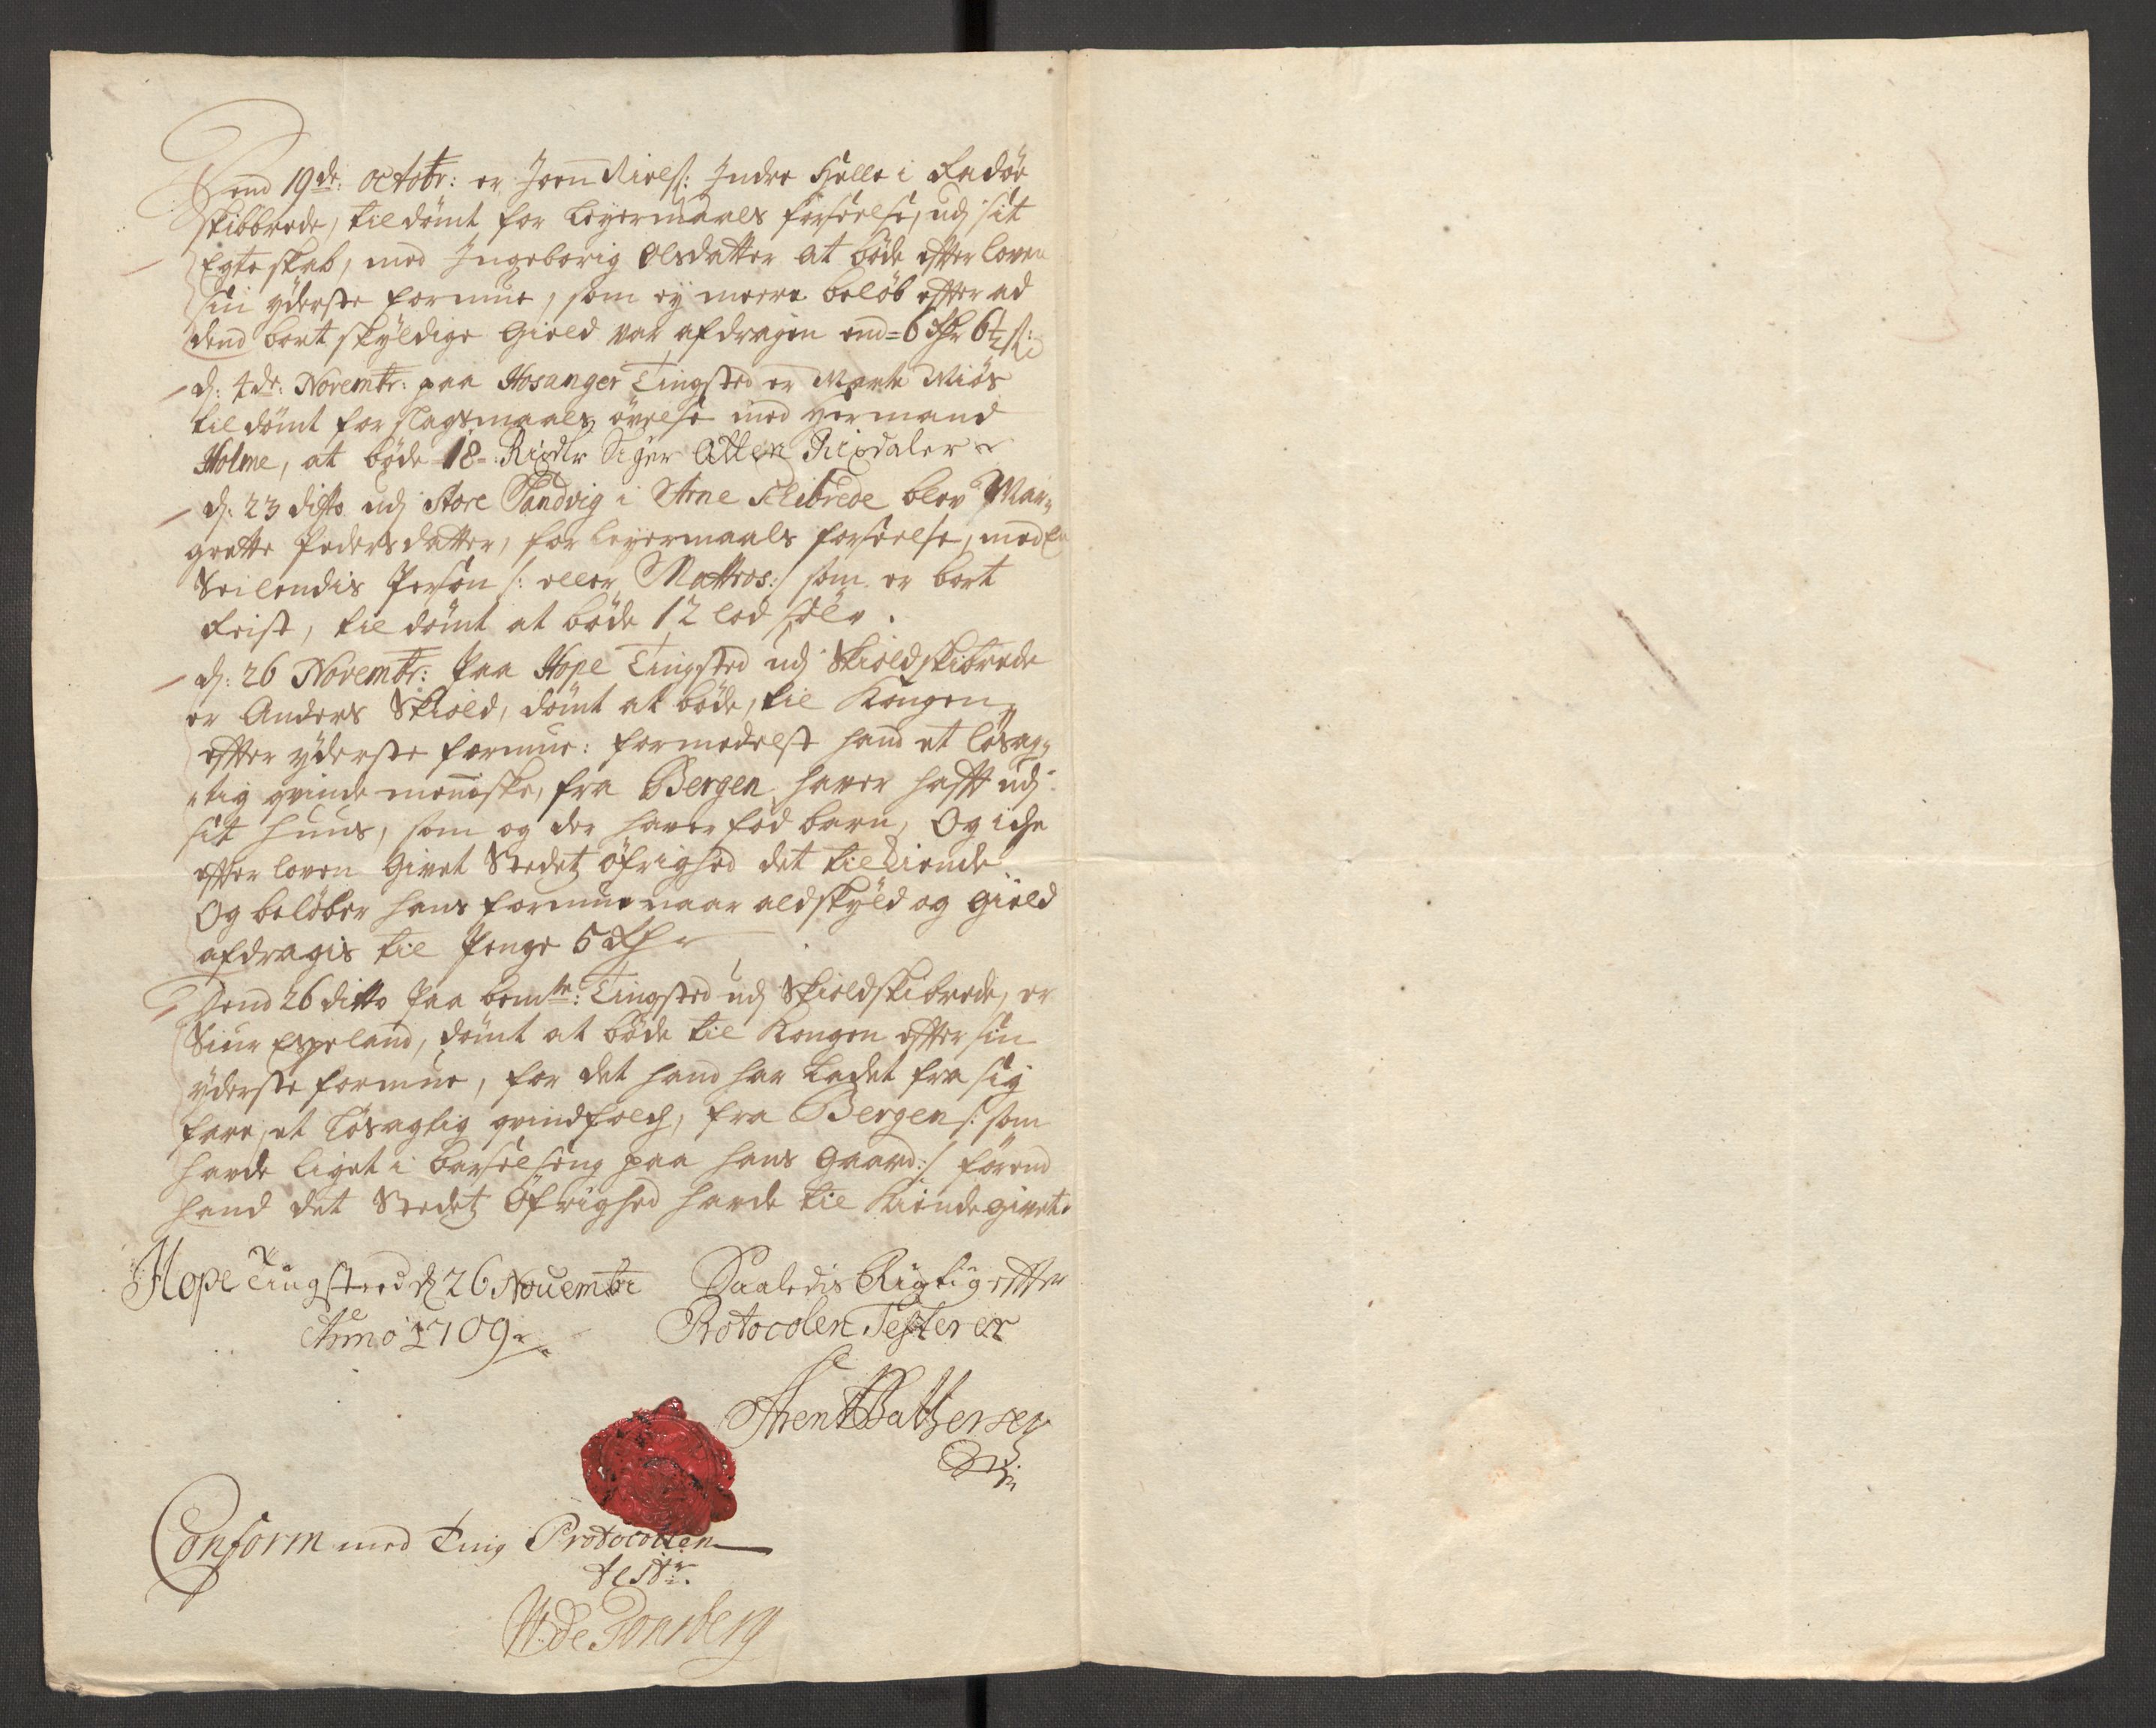 Dend 19de: Octobr: er Joen Nielß: Indre Helle i Radöe
skibbrede, til dömt for Leyermaals forseelse, udj sit
Egteskab, med Ingeborig Olsdatter at böde effter loven
sin yderste formue, som ey meere belöb effter ad
dend bort skyldige Gield var afdragen end = 6 Rdr 6½ ß:
d: 4de: Novembr: paa Hosanger Tingsted er Marte Miös
til dömt for slagsmaals övelse med Hermand
Holme, at böde 18 Rixdlr Siger Atten Rixdaler
d: 23 ditto udj Store Sandvig i Arne Schibrede blev Mar-
grette Pedersdatter, for Leyermaals forseelse, med en
Seilendis Person /: eller Mattros:/ som er bort
Reist, til dömt at böde 12 lod sölv.
d: 26 Novembr: Paa Hope Tingsted udj Skiold skibrede
er Anders Skiold, dömt at böde, til Kongen,
effter yderste formue: formedelst hand et lösag-
tig qvinde menniske, fra Bergen haver hafft udj
sit Huus, som og der haver föd barn, Og iche
effter loven Givet Stedetz öfrighed det tilkiende
Og belöber hans formue naar aldskyld og gield
afdragis til Penge 5 Rdr
Dend 26 ditto Paa bemte: Tingsted udj Skioldskibrede, er
Siur Espeland, dömt at böde til Kongen effter sin
yderste formue, for det hand har Ladet fra sig
fare, et Lösagtig qvindfolch, fra Bergen /: som
hafde liget i barselseng paa hans Gaard:/ förend
hand det Stedetz Öfrighed hafde til Kiende givet.
Hope Tingsteed d 26 Nouembr Saaledis Rigtig effter
Anno 1709 Protocolen Testerer
Arent
Conform med Ting Protocollen
testr.
de Tonsberg